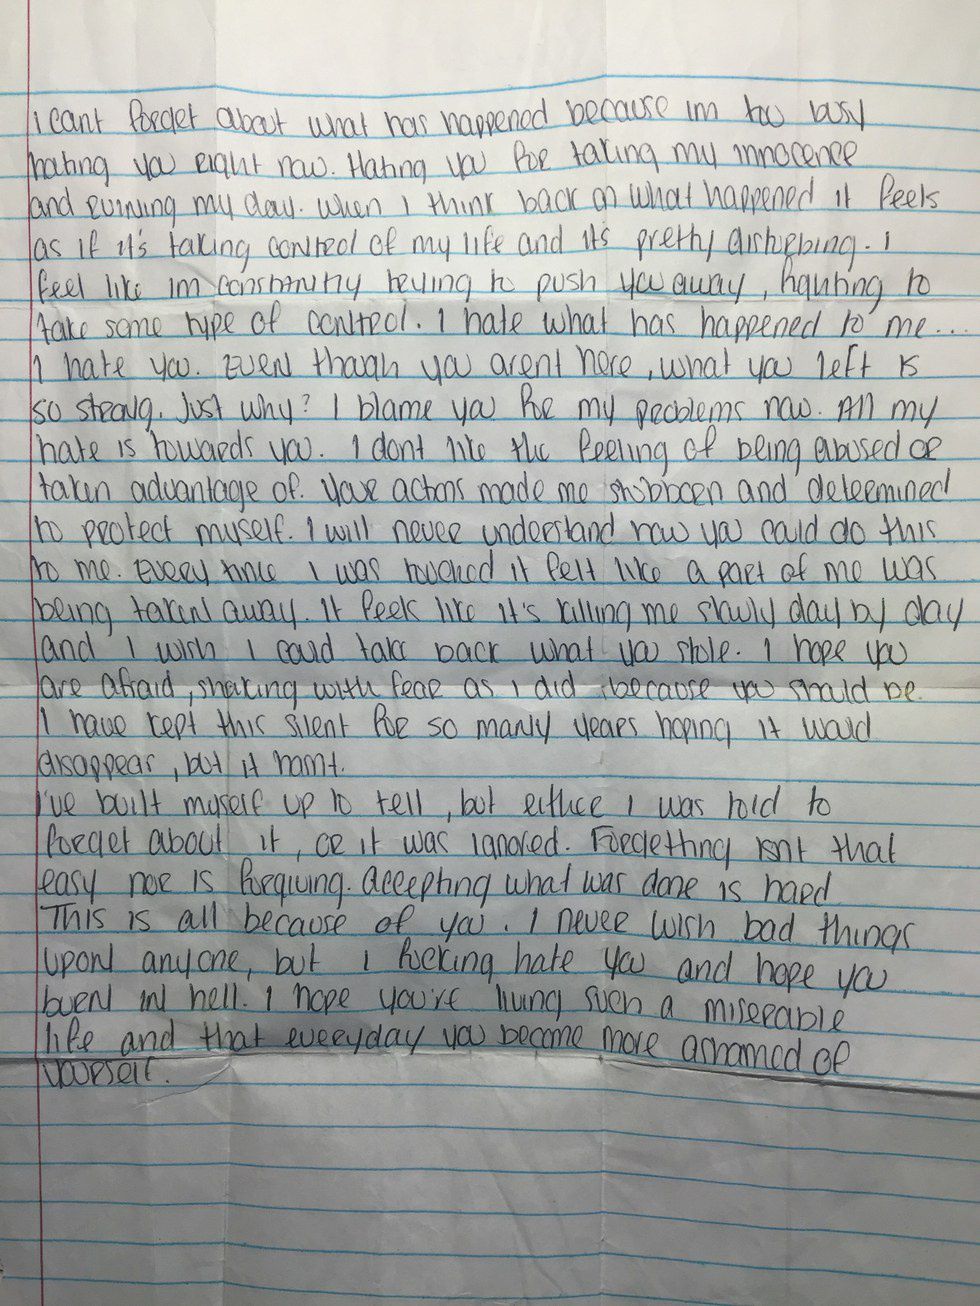 I cant forget about what has happened because im too busy
hating you right now. Hating you for taking my innocence
and ruining my day. When I think back on what happened it feels
as if it's taking control of my life and it's pretty disturbing. I
feel like im constantly trying to push you away, fighting to
take some type of control. I hate what has happened to me...
I hate you. Even though you arent here, what you left is
so strong. Just why? I blame you for my problems now. All my
hate is towards you. I dont like the feeling of being abused or
taken advantage of. Your actions made me stubborn and determined
to protect myself. I will never understand how you could do this
to me. Every time I was touched it felt like a part of me was
being taken away. It feels like it's killing me slowly day by day
and I wish I could take back what you stole. I hope you
are afraid, shaking with fear as I did because you should be.
I have kept this silent for so many years hoping it would
disappear, but it hasnt.
I've built myself up to tell, but either I was told to
forget about it, or it was ignored. Forgetting isnt that
easy nor is forgiving. Accepting what was done is hard
This is all because of you. I never wish bad things
upon anyone, but I fucking hate you and hope you
burn in hell. I hope you're living such a miserable
life and that everyday you become more ashamed of
yourself.